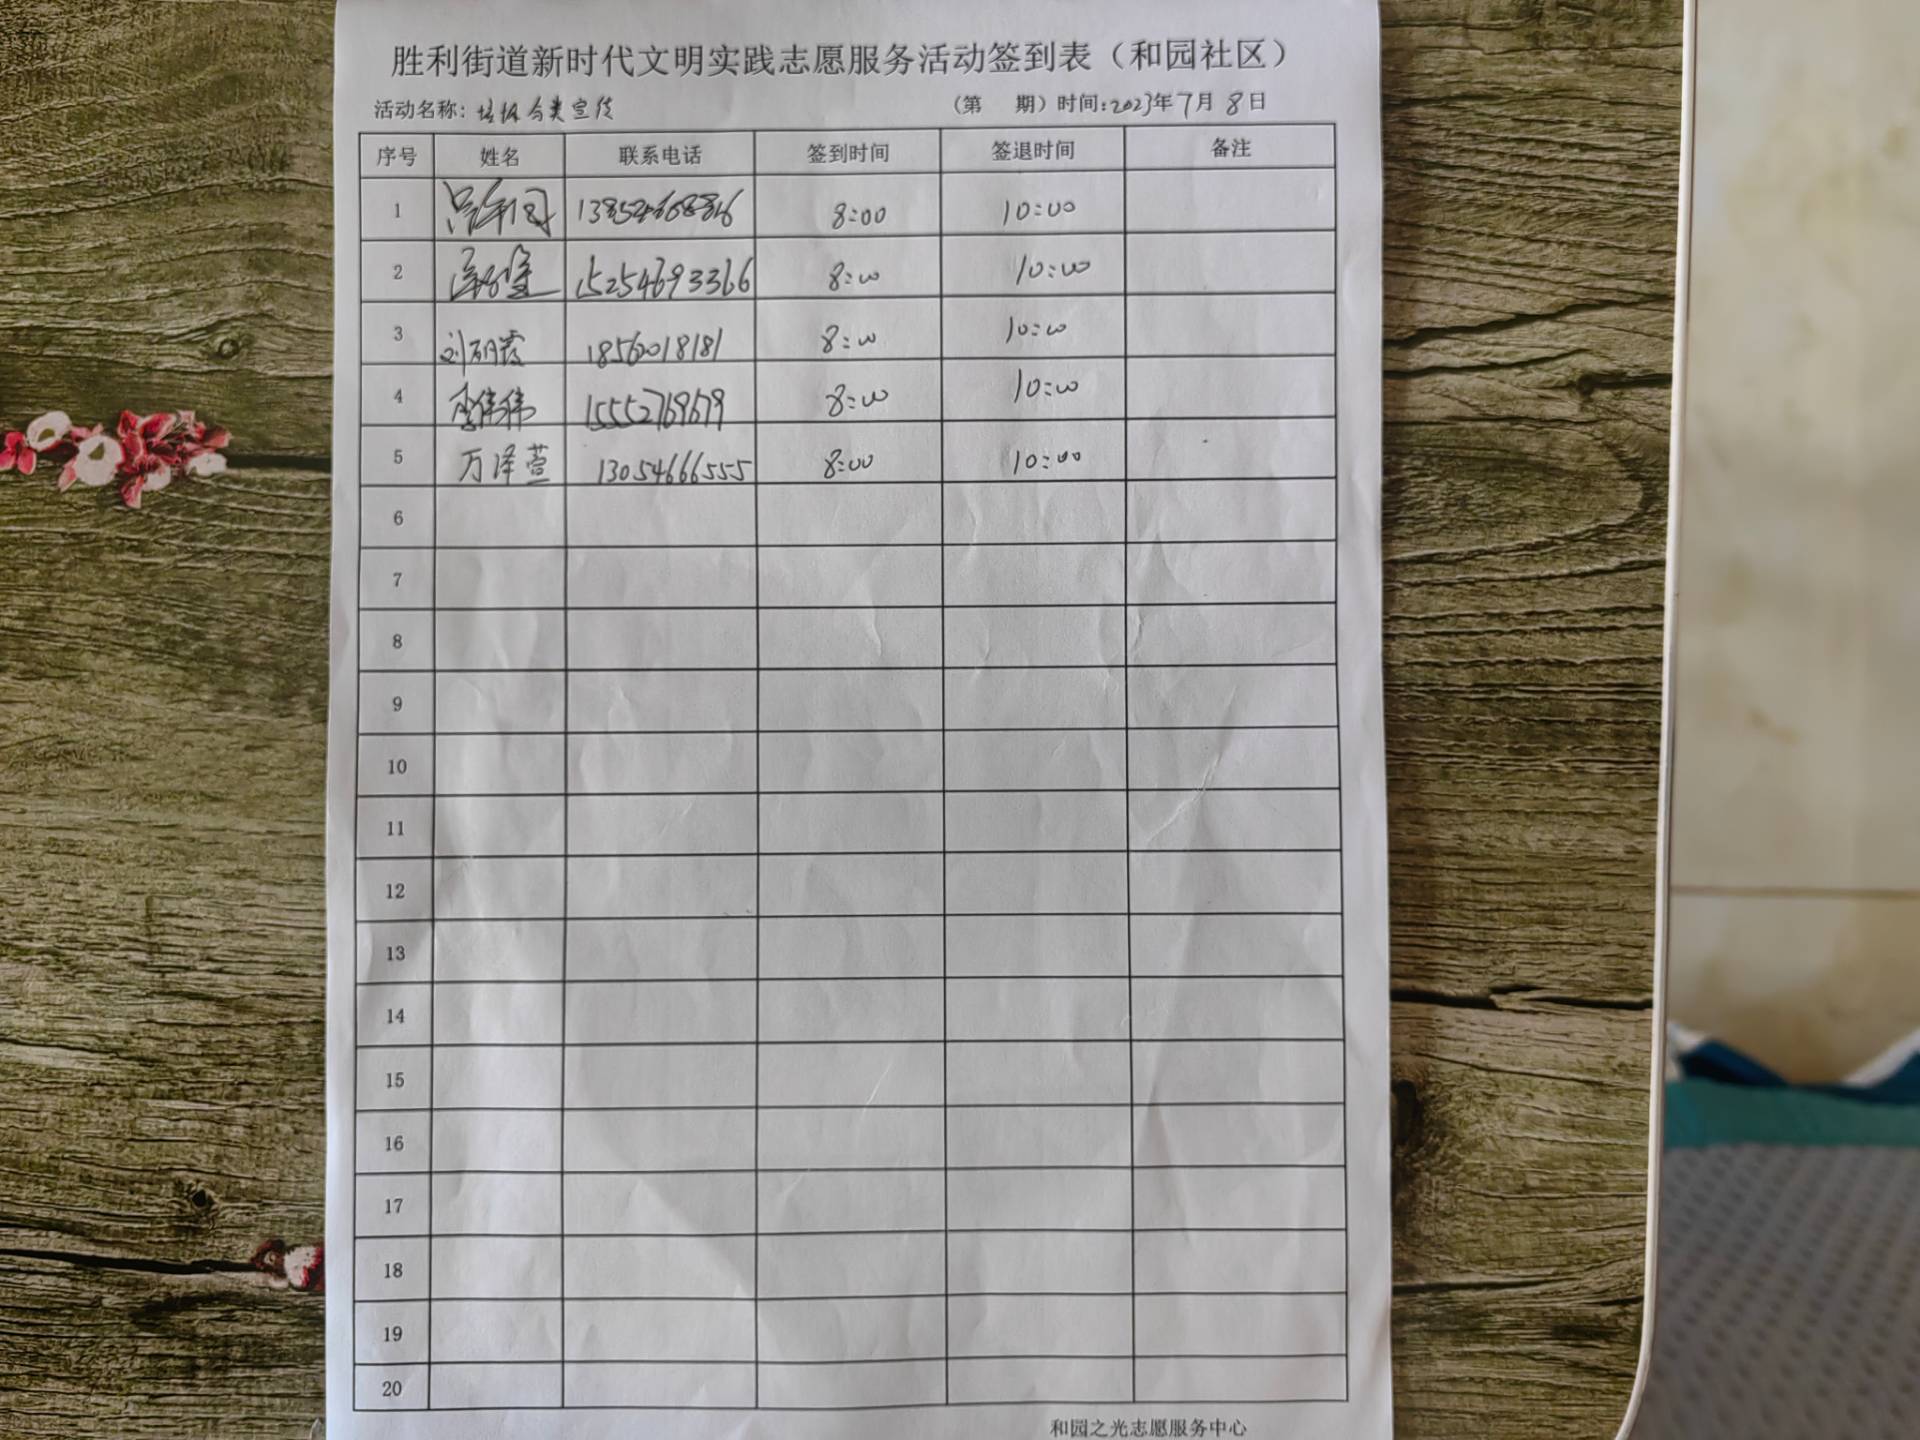 胜利街道新时代文明实践志愿服务活动签到表（和园社区）
活动名称：垃圾分类宣传 （第 期）时间：2023年7月8日
序号 姓名 联系电话 签到时间 签退时间 备注
1 8:00 10:00
2 15254693366 8:00 10:00
3 刘丽霞 18562018181 8:00 10:00
4 李伟伟 15552769679 8:00 10:00
5 万泽萱 13054666555 8:00 10:00
6
7
8
9
10
11
12
13
14
15
16
17
18
19
20
和园之光志愿服务中心